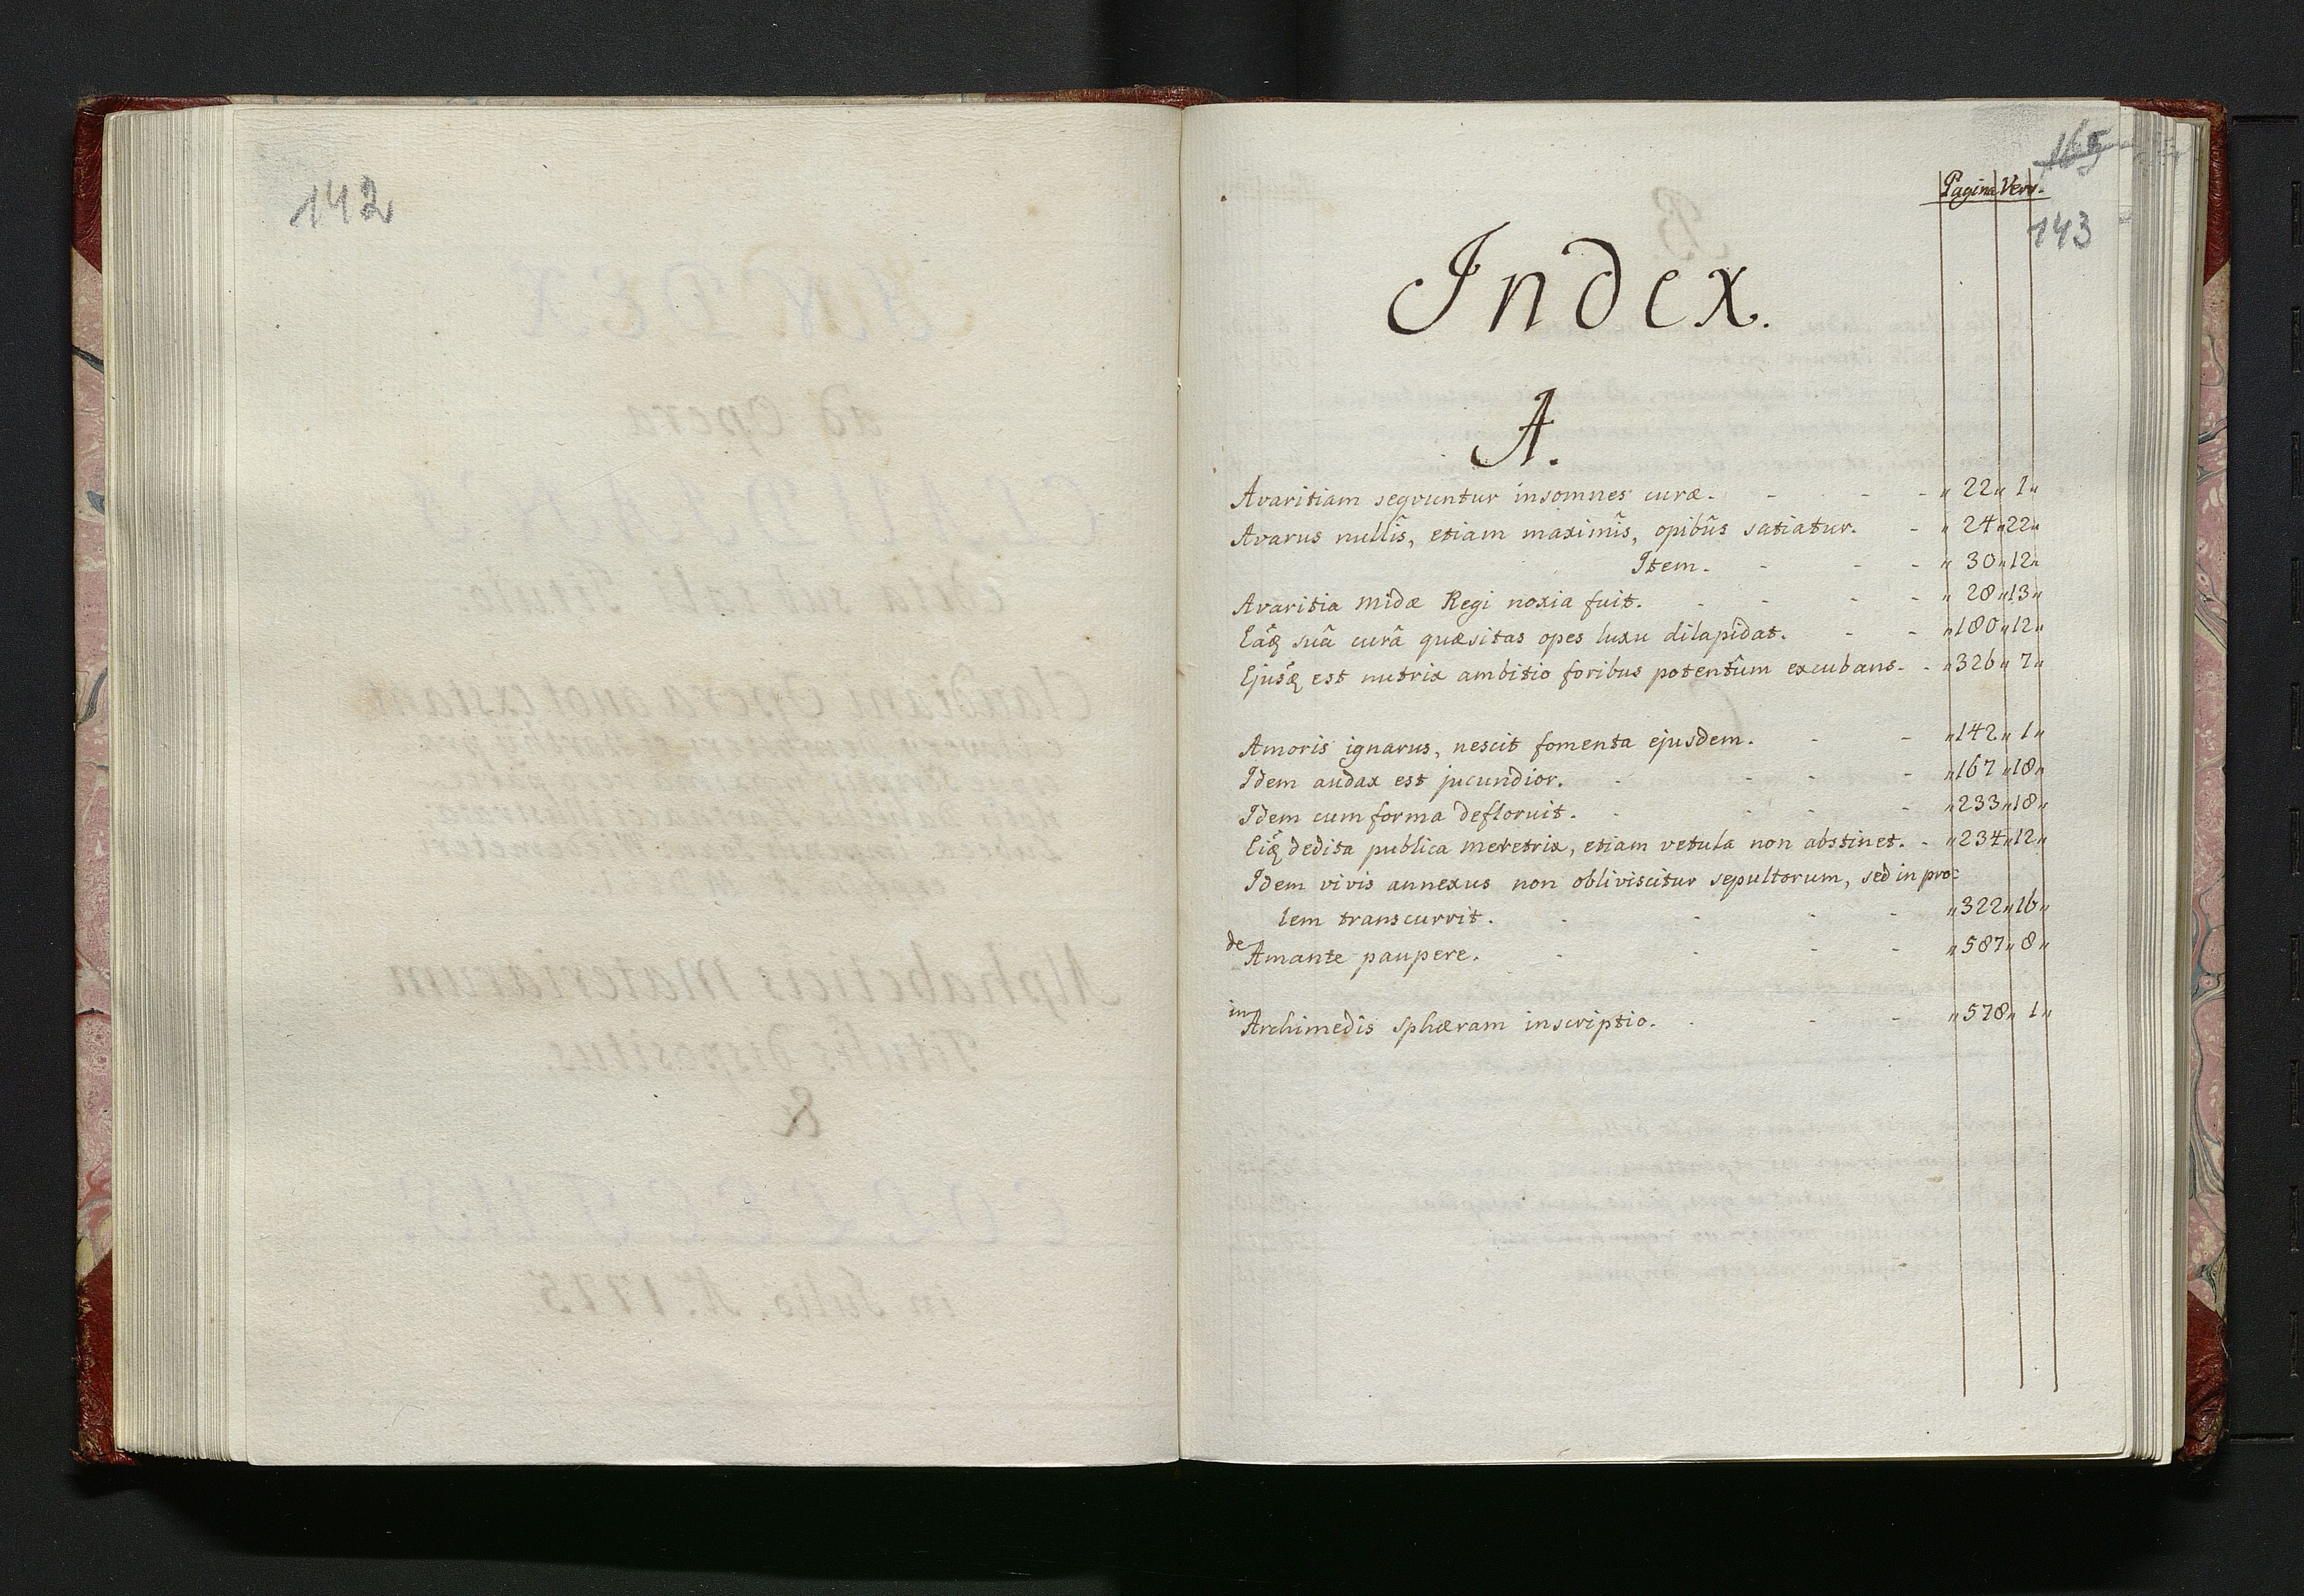 142
165
Pagina Vers.
143
Index.
A.
Avaritiam seqvuntur insomnes curæ. - - - " 22 " 1 "
Avarus nullis, etiam maximis, opibûs satiatur. - " 24 " 22 "
Item. - - - " 30 " 12 "
Avaritia Midæ Regi noxia fuit. - - - - " 28 " 13 "
Eaq̃ suâ curâ quæsitas opes luxu dilapidat. - - " 180 " 12 "
Ejusq̃ est nutrix ambitio foribus potentûm excubans. - " 326 " 7 "
Amoris ignarus, nescit fomenta ejusdem. - - " 142 " 1 "
Idem audax est jucundior. - - - - " 167 " 18 "
Idem cum forma defloruit. - - - - " 233 " 18 "
Eiq̃ dedita publica meretrix, etiam vetula non abstinet. - " 234 " 12 "
Idem vivis annexus non obliviscitur sepultorum, sed in pro:
lem transcurrit. - - - - " 322 " 16 "
de Amante paupere. - - - - " 587 " 8 "
in Archimedis sphæram inscriptio. - - - " 578 " 1 "